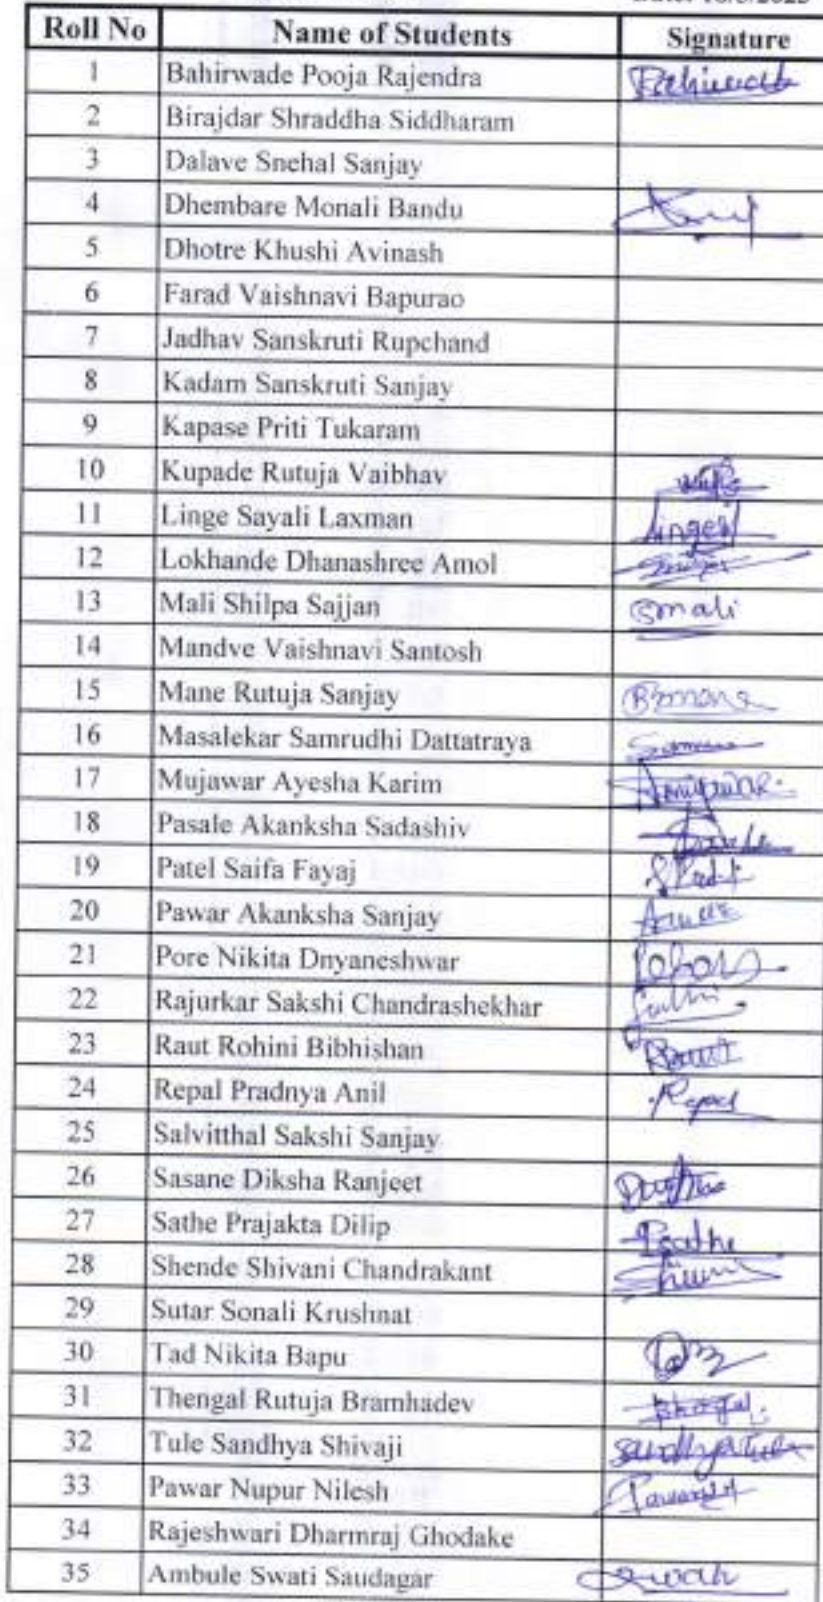 Roll No Name of Students Signature
1 Bahirwade Pooja Rajendra
2 Birajdar Shraddha Siddharam
3 Dalave Snehal Sanjay
4 Dhembare Monali Bandu
5 Dhotre Khushi Avinash
6 Farad Vaishnavi Bapurao
7 Jadhav Sanskruti Rupchand
8 Kadam Sanskruti Sanjay
9 Kapase Priti Tukaram
10 Kupade Rutuja Vaibhav
11 Linge Sayali Laxman
12 Lokhande Dhanashree Amol
13 Mali Shilpa Sajjan Smali
14 Mandve Vaishnavi Santosh
15 Mane Rutuja Sanjay
16 Masalekar Samrudhi Dattatraya
17 Mujawar Ayesha Karim
18 Pasale Akanksha Sadashiv
19 Patel Saifa Fayaj
20 Pawar Akanksha Sanjay
21 Pore Nikita Dnyaneshwar
22 Rajurkar Sakshi Chandrashekhar
23 Raut Rohini Bibhishan
24 Repal Pradnya Anil
25 Salvitthal Sakshi Sanjay
26 Sasane Diksha Ranjeet
27 Sathe Prajakta Dilip
28 Shende Shivani Chandrakant
29 Sutar Sonali Krushnat
30 Tad Nikita Bapu
31 Thengal Rutuja Bramhadev
32 Tule Sandhya Shivaji
33 Pawar Nupur Nilesh
34 Rajeshwari Dharmraj Ghodake
35 Ambule Swati Saudagar